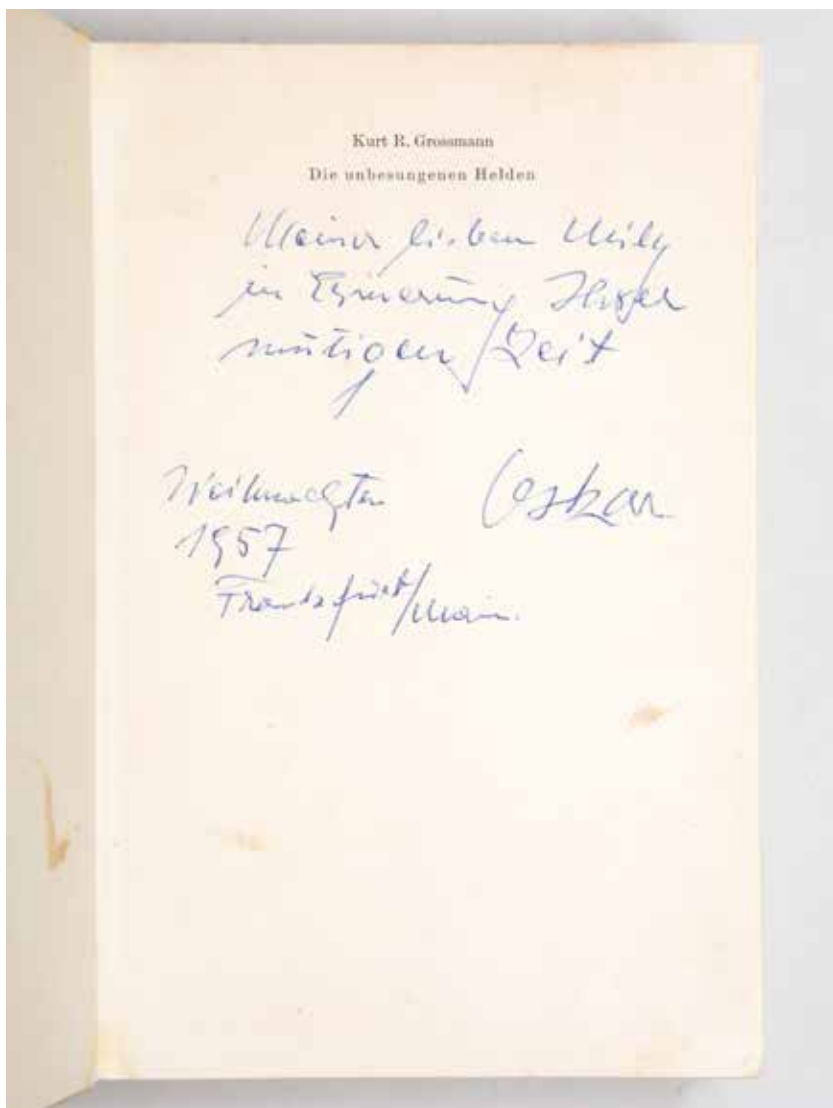 Kurt R. Grossmann
Die unbesungenen Helden
Meiner lieben
in Erinnerung
mutigen Zeit
Weihnachten
Oskar
1957
Frankfurt/Main.